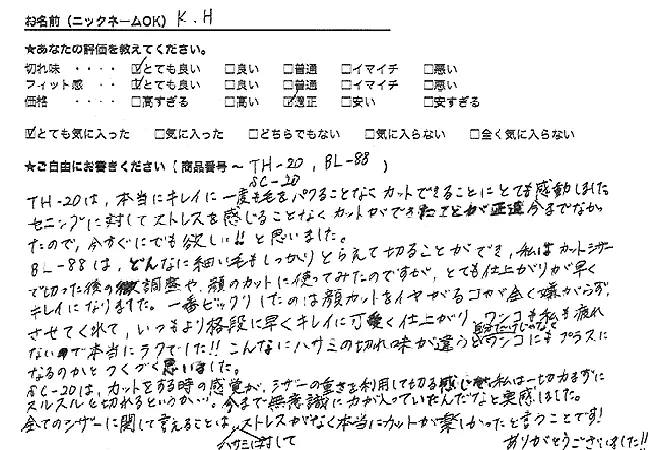 お名前（ニックネームOK） K.H
★あなたの評価を教えてください。
切れ味 ・・・・ ☑とても良い □良い □普通 □イマイチ □悪い
フィット感 ・・ ☑とても良い □良い □普通 □イマイチ □悪い
価格 ・・・・ □高すぎる □高い ☑適正 □安い □安すぎる
☑とても気に入った □気に入った □どちらでもない □気に入らない □全く気に入らない
★ご自由にお書きください［商品番号～ TH-20 , BL-88 ）
SC-20
TH-20は、本当にキレイに一度も毛をパクることなくカットできることにとても感動しました
セニングに対してストレスを感じることなくカットができたことが 今までなかっ
たので、今すぐにでも欲しい!!と思いました。
BL-88は、どんなに細い毛もしっかりとらえて切ることができ、私はカットシザー
で切った後の微調整や、顔のカットに使ってみたのですが、とても仕上がりが早く
キレイになりました。一番ビックリしたのは顔カットをイヤがるコが全く嫌がらず、
させてくれて、いつもより格段に早くキレイに可愛く仕上がり、ワンコも私も疲れ
自分だけじゃなく
ないので本当にラクでした!! こんなにハサミの切れ味が違うとワンコにもプラスに
なるのかとつくづく思いました。
SC-20は、カットをする時の感覚が、シザーの重さを利用しても切る感じで私は一切力まずに
スルスルと切れるというか…。今まで無意識に力が入っていたんだなと実感しました。
全てのシザーに関して言えることは、ストレスがなく本当にカットが楽しかったと言うことです!
ハサミに対して
ありがとうございました!!